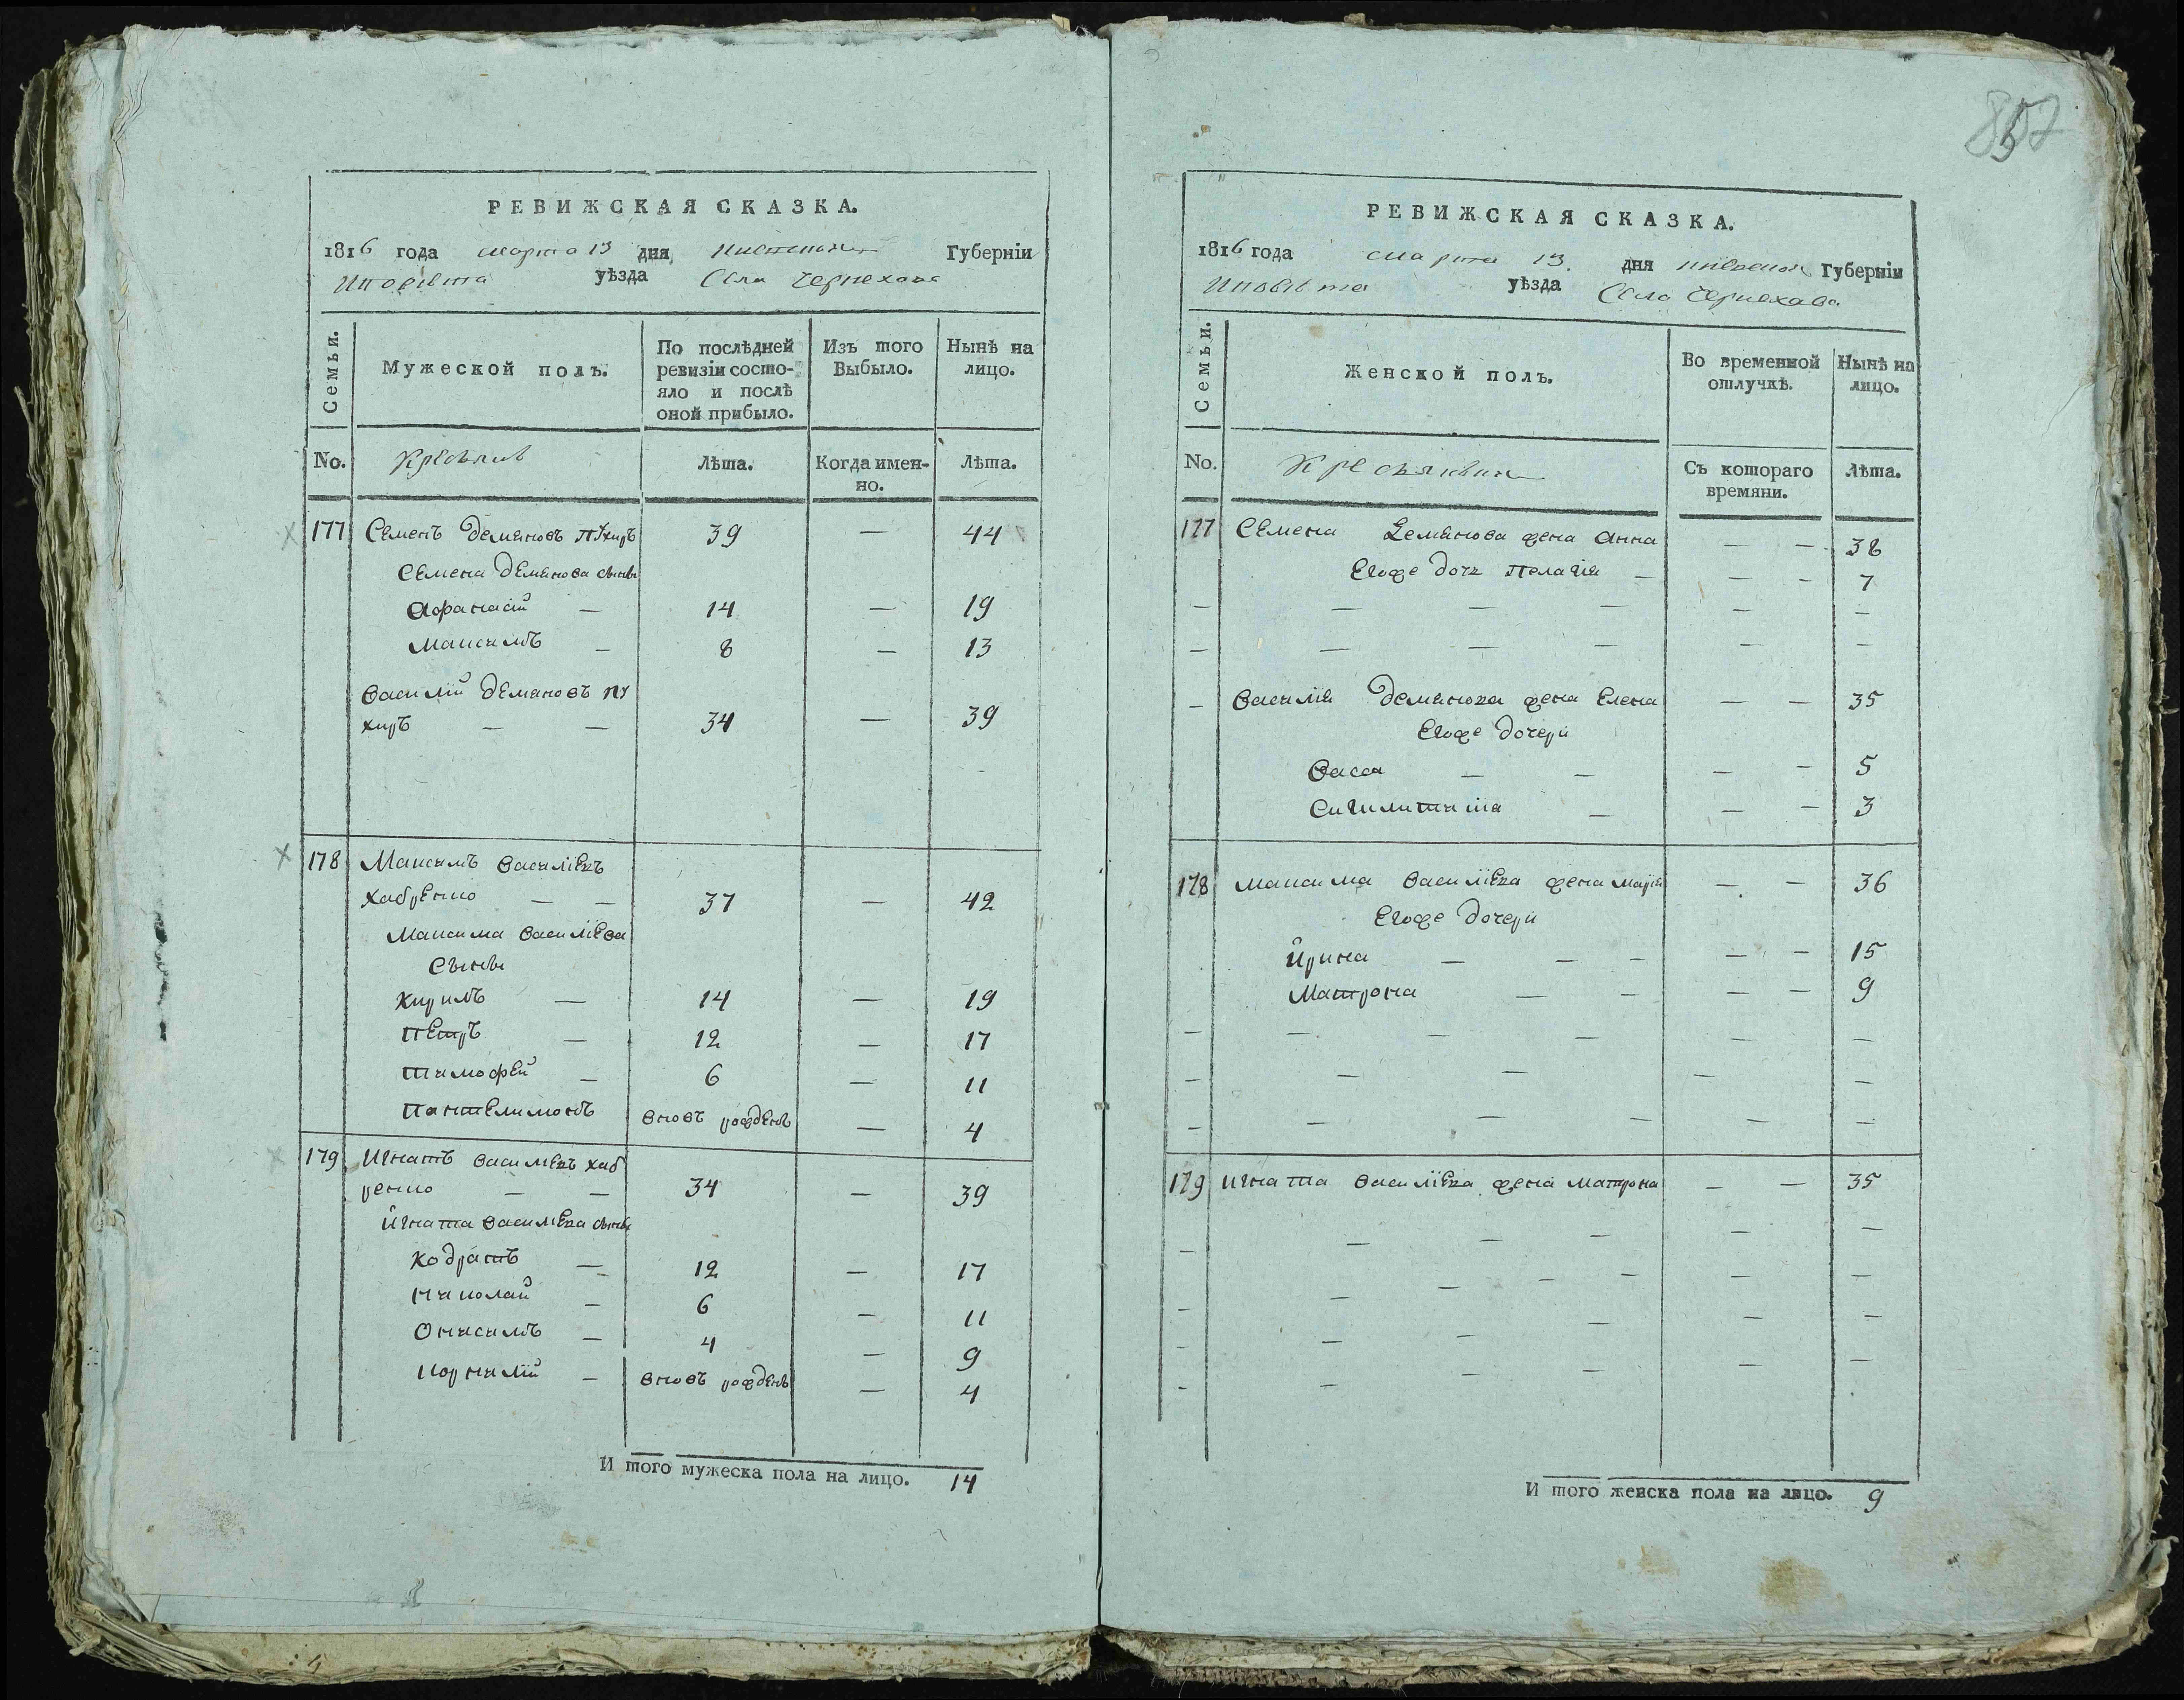 РЕВИЖСКАЯ СКАЗКА.
1816 года марта 13 дня Губерніи
уѣзда Села Чернехова
Семьи.
Мужеской полъ.
По послѣдней ревизіи состо-
яло и послѣ
оной прибыло.
Изъ того
Выбыло.
Нынѣ на
лицо.
No.
Лѣта.
Когда имен-
но.
Лѣта.
177 Семенъ Демяновъ Пухиръ 39 — 44
Семена Демянова сыны
Афанасій — 14 — 19
Максимъ — 8 — 13
Василій Демяновъ Пу
хиръ — — 34 — 39
178 Максимъ Василіевъ
Хабренко — — 37 — 42
Максима Василіева
Сыны
Кирилъ — 14 — 19
Петръ — 12 — 17
Тимофей — 6 — 11
Пантелимонъ вновъ рожденъ — 4
179 Игнатъ Василіевъ Хаб
ренко — — 34 — 39
Игната Василіева сыны
Кодратъ — 12 — 17
Николай — 6 — 11
Онисимъ — 4 — 9
Корнилій — вновъ рожденъ — 4
И того мужеска пола на лицо. 14
857
РЕВИЖСКАЯ СКАЗКА.
1816 года марта 13. дня Губерніи
уѣзда Села Чернехова
Семьи.
Женской полъ.
Во временной
отлучкѣ.
Нынѣ на
лицо.
No.
Съ котораго
времяни.
Лѣта.
177 Семена Демянова жена Анна — — 38
Егоже дочь Пелагія — — — 7
— Василія Демянова жена Елена — — 35
Егоже дочери
Васса — — — — 5
— — — 3
178 Максима Василіева жена Марія — — 36
Егоже дочери
Ирина — — — — — 15
Матрона — — — — 9
179 Игната Василіева жена Матрона — — 35
И того женска пола на лицо. 9